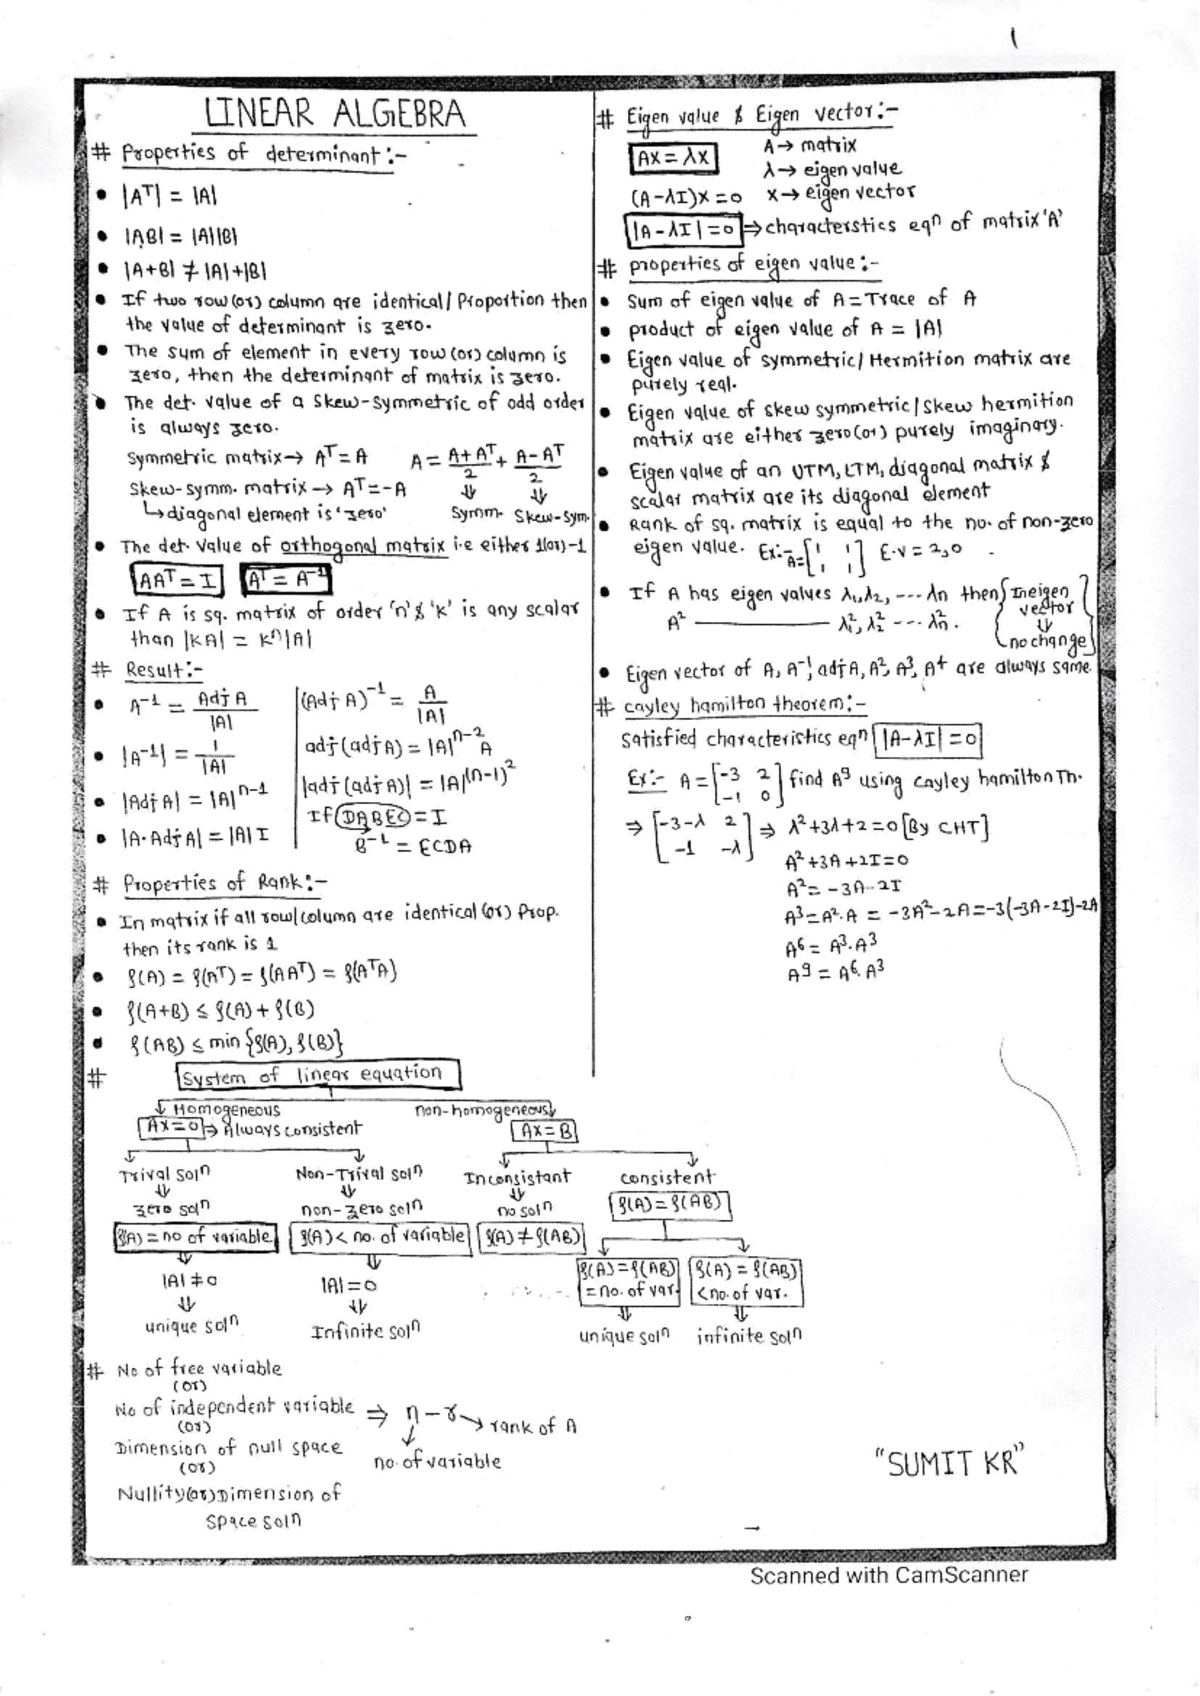 1
LINEAR ALGEBRA
# Properties of determinant:-
• |Aᵀ| = |A|
• |AB| = |A||B|
• |A+B| ≠ |A|+|B|
• If two row(or) column are identical/Proportion then
the value of determinant is zero.
• The sum of element in every row(or) column is
zero, then the determinant of matrix is zero.
• The det. value of a Skew-symmetric of odd order
is always zero.
Symmetric matrix → Aᵀ = A   A = (A+Aᵀ)/2 + (A-Aᵀ)/2
Skew-symm. matrix → Aᵀ = -A   ⇓ ⇓
↳ diagonal element is 'zero'   Symm. Skew-sym.
• The det. Value of orthogonal matrix i.e either 1(or)-1
AAᵀ = I   Aᵀ = A⁻¹
• If A is sq. matrix of order 'n' & 'k' is any scalar
than |KA| = Kⁿ|A|
# Result:-
• A⁻¹ = Adj A / |A|
• |A⁻¹| = 1/|A|
• |Adj A| = |A|ⁿ⁻¹
• |A·Adj A| = |A| I
(Adj A)⁻¹ = A/|A|
adj(adj A) = |A|ⁿ⁻² A
|adj(adj A)| = |A|^(n-1)²
If DABEC = I
B⁻¹ = ECDA
# Properties of Rank:-
• In matrix if all row/column are identical (or) Prop.
then its rank is 1
• ρ(A) = ρ(Aᵀ) = ρ(AAᵀ) = ρ(AᵀA)
• ρ(A+B) ≤ ρ(A) + ρ(B)
• ρ(AB) ≤ min {ρ(A), ρ(B)}
# System of linear equation
Homogeneous   non-homogeneous
AX=0 ⇒ Always consistent   AX=B
Trival solⁿ   Non-Trival solⁿ   Inconsistant   consistent
⇓ ⇓ ⇓
zero solⁿ   non-zero solⁿ   no solⁿ   ρ(A) = ρ(AB)
ρ(A) = no of variable   ρ(A) < no. of variable   ρ(A) ≠ ρ(AB)
ρ(A) = ρ(AB)   ρ(A) = ρ(AB)
|A| ≠ 0   |A| = 0   = no. of var.   < no. of var.
⇓ ⇓ ⇓ ⇓
unique solⁿ   Infinite solⁿ   unique solⁿ   infinite solⁿ
# No of free variable
(or)
No of independent variable ⇒ n - r → rank of A
(or)
Dimension of null space   no. of variable
(or)
Nullity(or) Dimension of
Space solⁿ
# Eigen value & Eigen vector:-
AX = λX   A → matrix
λ → eigen value
(A-λI)X = 0   X → eigen vector
|A-λI| = 0 ⇒ characterstics eqⁿ of matrix 'A'
# properties of eigen value:-
• Sum of eigen value of A = Trace of A
• product of eigen value of A = |A|
• Eigen value of symmetric/Hermition matrix are
purely real.
• Eigen value of skew symmetric/Skew hermition
matrix are either zero(or) purely imaginary.
• Eigen value of an UTM, LTM, diagonal matrix &
scalar matrix are its diagonal element
• Rank of sq. matrix is equal to the no. of non-zero
eigen value. Ex:- A = [1 1; 1 1] E.V = 2,0
• If A has eigen values λ₁, λ₂, --- λn then {In eigen
vector
A² ——— λ₁², λ₂² --- λn².   ⇓
no change}
• Eigen vector of A, A⁻¹, adj A, A², A³, A⁴ are always same.
# cayley hamilton theorem:-
Satisfied characteristics eqⁿ |A-λI| = 0
Ex:- A = [-3 2; -1 0] find A⁹ using Cayley hamilton Th.
⇒ [-3-λ 2; -1 -λ] ⇒ λ²+3λ+2=0 [By CHT]
A²+3A+2I=0
A² = -3A-2I
A³ = A²·A = -3A²-2A = -3(-3A-2I)-2A
A⁶ = A³·A³
A⁹ = A⁶·A³
"SUMIT KR"
Scanned with CamScanner